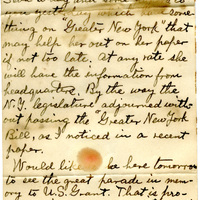 to
ject
which
some
thing on "Greater New York" that
may help her out on her paper
if not too late. At any rate she
will have the information from
headquarters. By the way the
N.Y. legislature adjourned with-
out passing the "Greater New York
Bill, as I noticed in a recent
paper.
Would like be here tomorrow
to see the great parade in mem-
ory to U.S. Grant. That is pro-